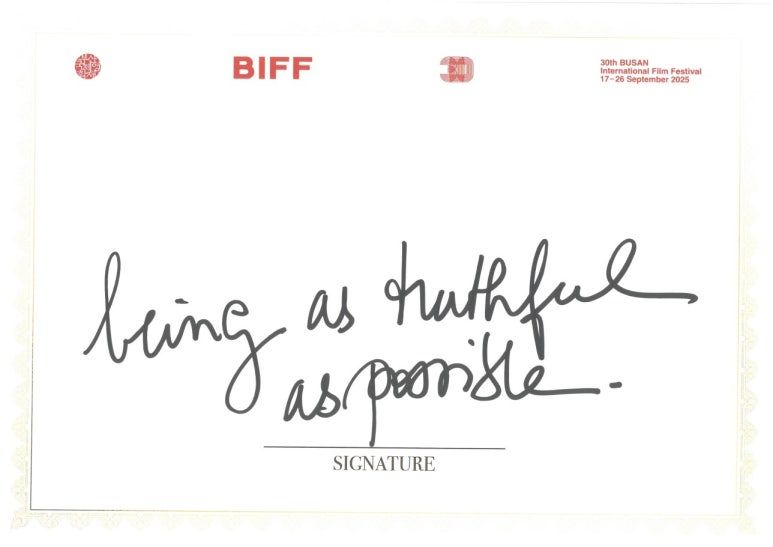 BIFF
30th BUSAN
International Film Festival
17–26 September 2025
being as truthful
as possible.
SIGNATURE